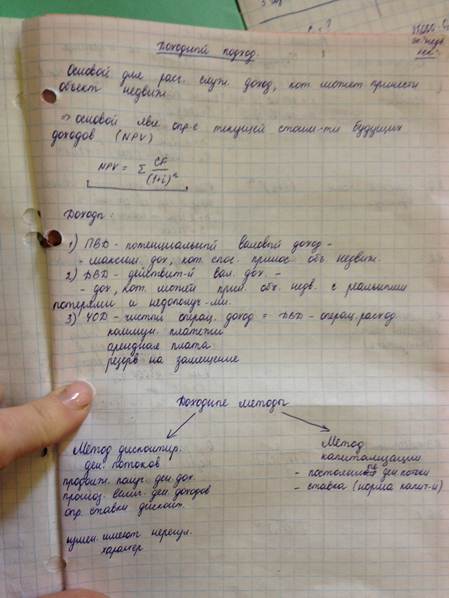 Доходный подход.
Основой для расч. служ. доход, кот. может принести
объект недвиж.
основой явл. опр-е текущей стоим-ти будущих
доходов (NPV)
NPV = Σ CF/(1+i)ⁿ
Доходы:
1) ПВД - потенциальный валовый доход -
- максим. дох, кот. спос. принос. об. недвиж.
2) ДВД - действит-й вал. дох. -
- дох, кот. может прин. об. недв. с реальными
потерями и недополуч-ми.
3) ЧОД - чистый операц. доход = ДВД - операц. расход
коммун. платежи
арендная плата
резерв на замещение
Доходные методы
Метод дисконтир.
ден. потоков
продолж. получ. ден. дох.
прогноз. велич. ден. доходов
опр. ставки дисконт.
измен. имеют нерегул.
характер
Метод
капитализации
- постоянн. ден. потоки
- ставка (норма капит-и)